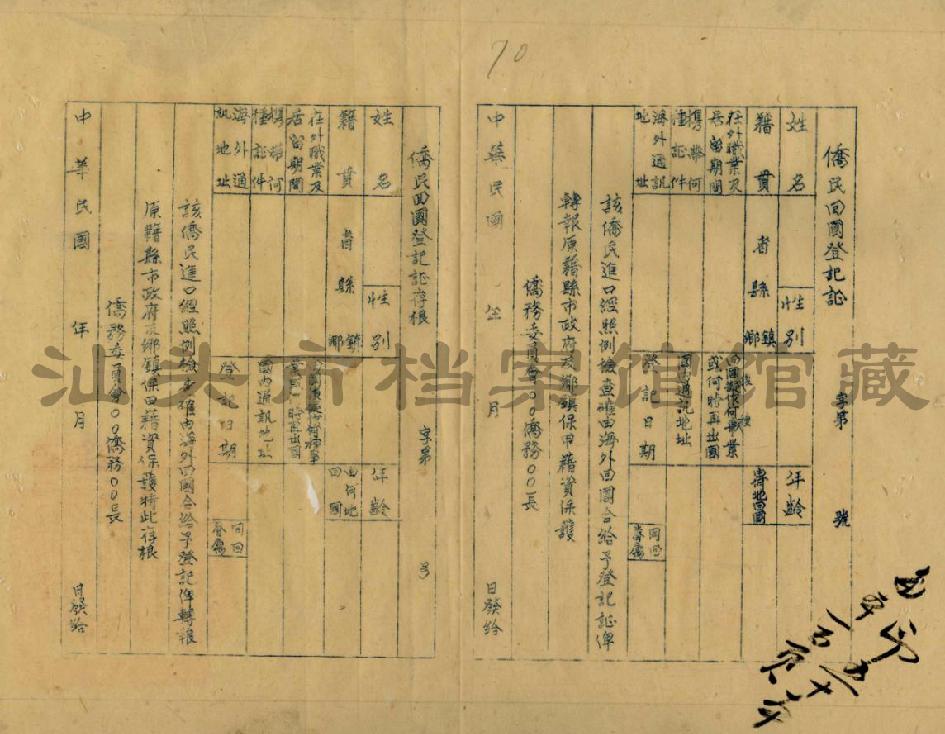 70
僑民回國登記証
字第 號
姓名 性別 年齡
籍貫 省縣鄉鎮
在外職業及居留期間
或何時再出國
攜帶何種証件
國內通訊地址
海外通訊地址
登記日期
同回眷屬
該僑民進口經照例檢查確由海外回國合給予登記証俾
轉報原籍縣市政府及鄉鎮保甲藉資保護
僑務委員會○○僑務○○長
中華民國 年 月 日發給
僑民回國登記証存根
字第 号
姓名 性別 年齡
籍貫 省縣鄉鎮 由何地回國
在外職業及居留期間
攜帶何種証件
國內通訊地址
海外通訊地址
登記日期
同回眷屬
該僑民進口經照例檢查確由海外回國合給予登記俾轉報
原籍縣市政府及鄉鎮保甲藉資保護特此存根
僑務委員會○○僑務○○長
中華民國 年 月 日發給
汕头市档案馆馆藏